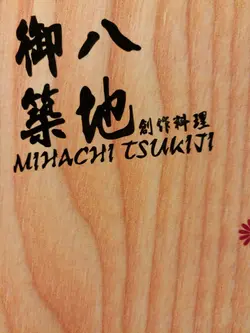 御八
築地
創作料理
MIHACHI TSUKIJI